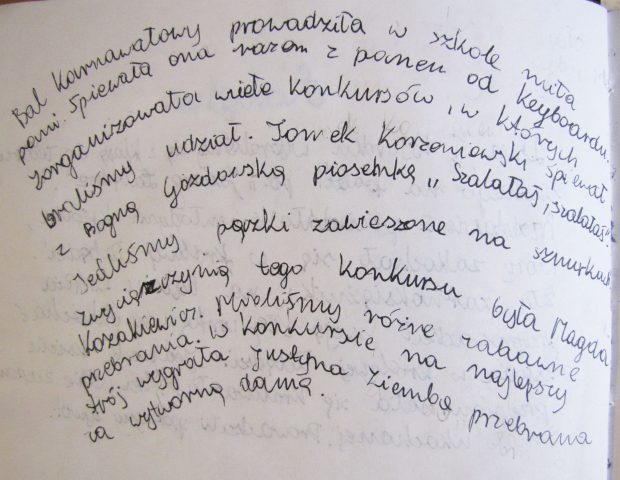 Bal Karnawałowy prowadziła w szkole miła
pani. Śpiewała ona razem z panem od Keyboardu.
Zorganizowała wiele konkursów, w których
braliśmy udział. Tomek Korzeniowski śpiewał
z Bogną Gozdowską piosenkę „Szalałaś, szalałaś"
Jedliśmy pączki zawieszone na sznurkach
zwyciężczynią tego konkursu była Magda
Kozakiewicz. Mieliśmy różne zabawne
przebrania. W konkursie na najlepszy
strój wygrała Justyna Ziemba przebrana
za wytworną damą.